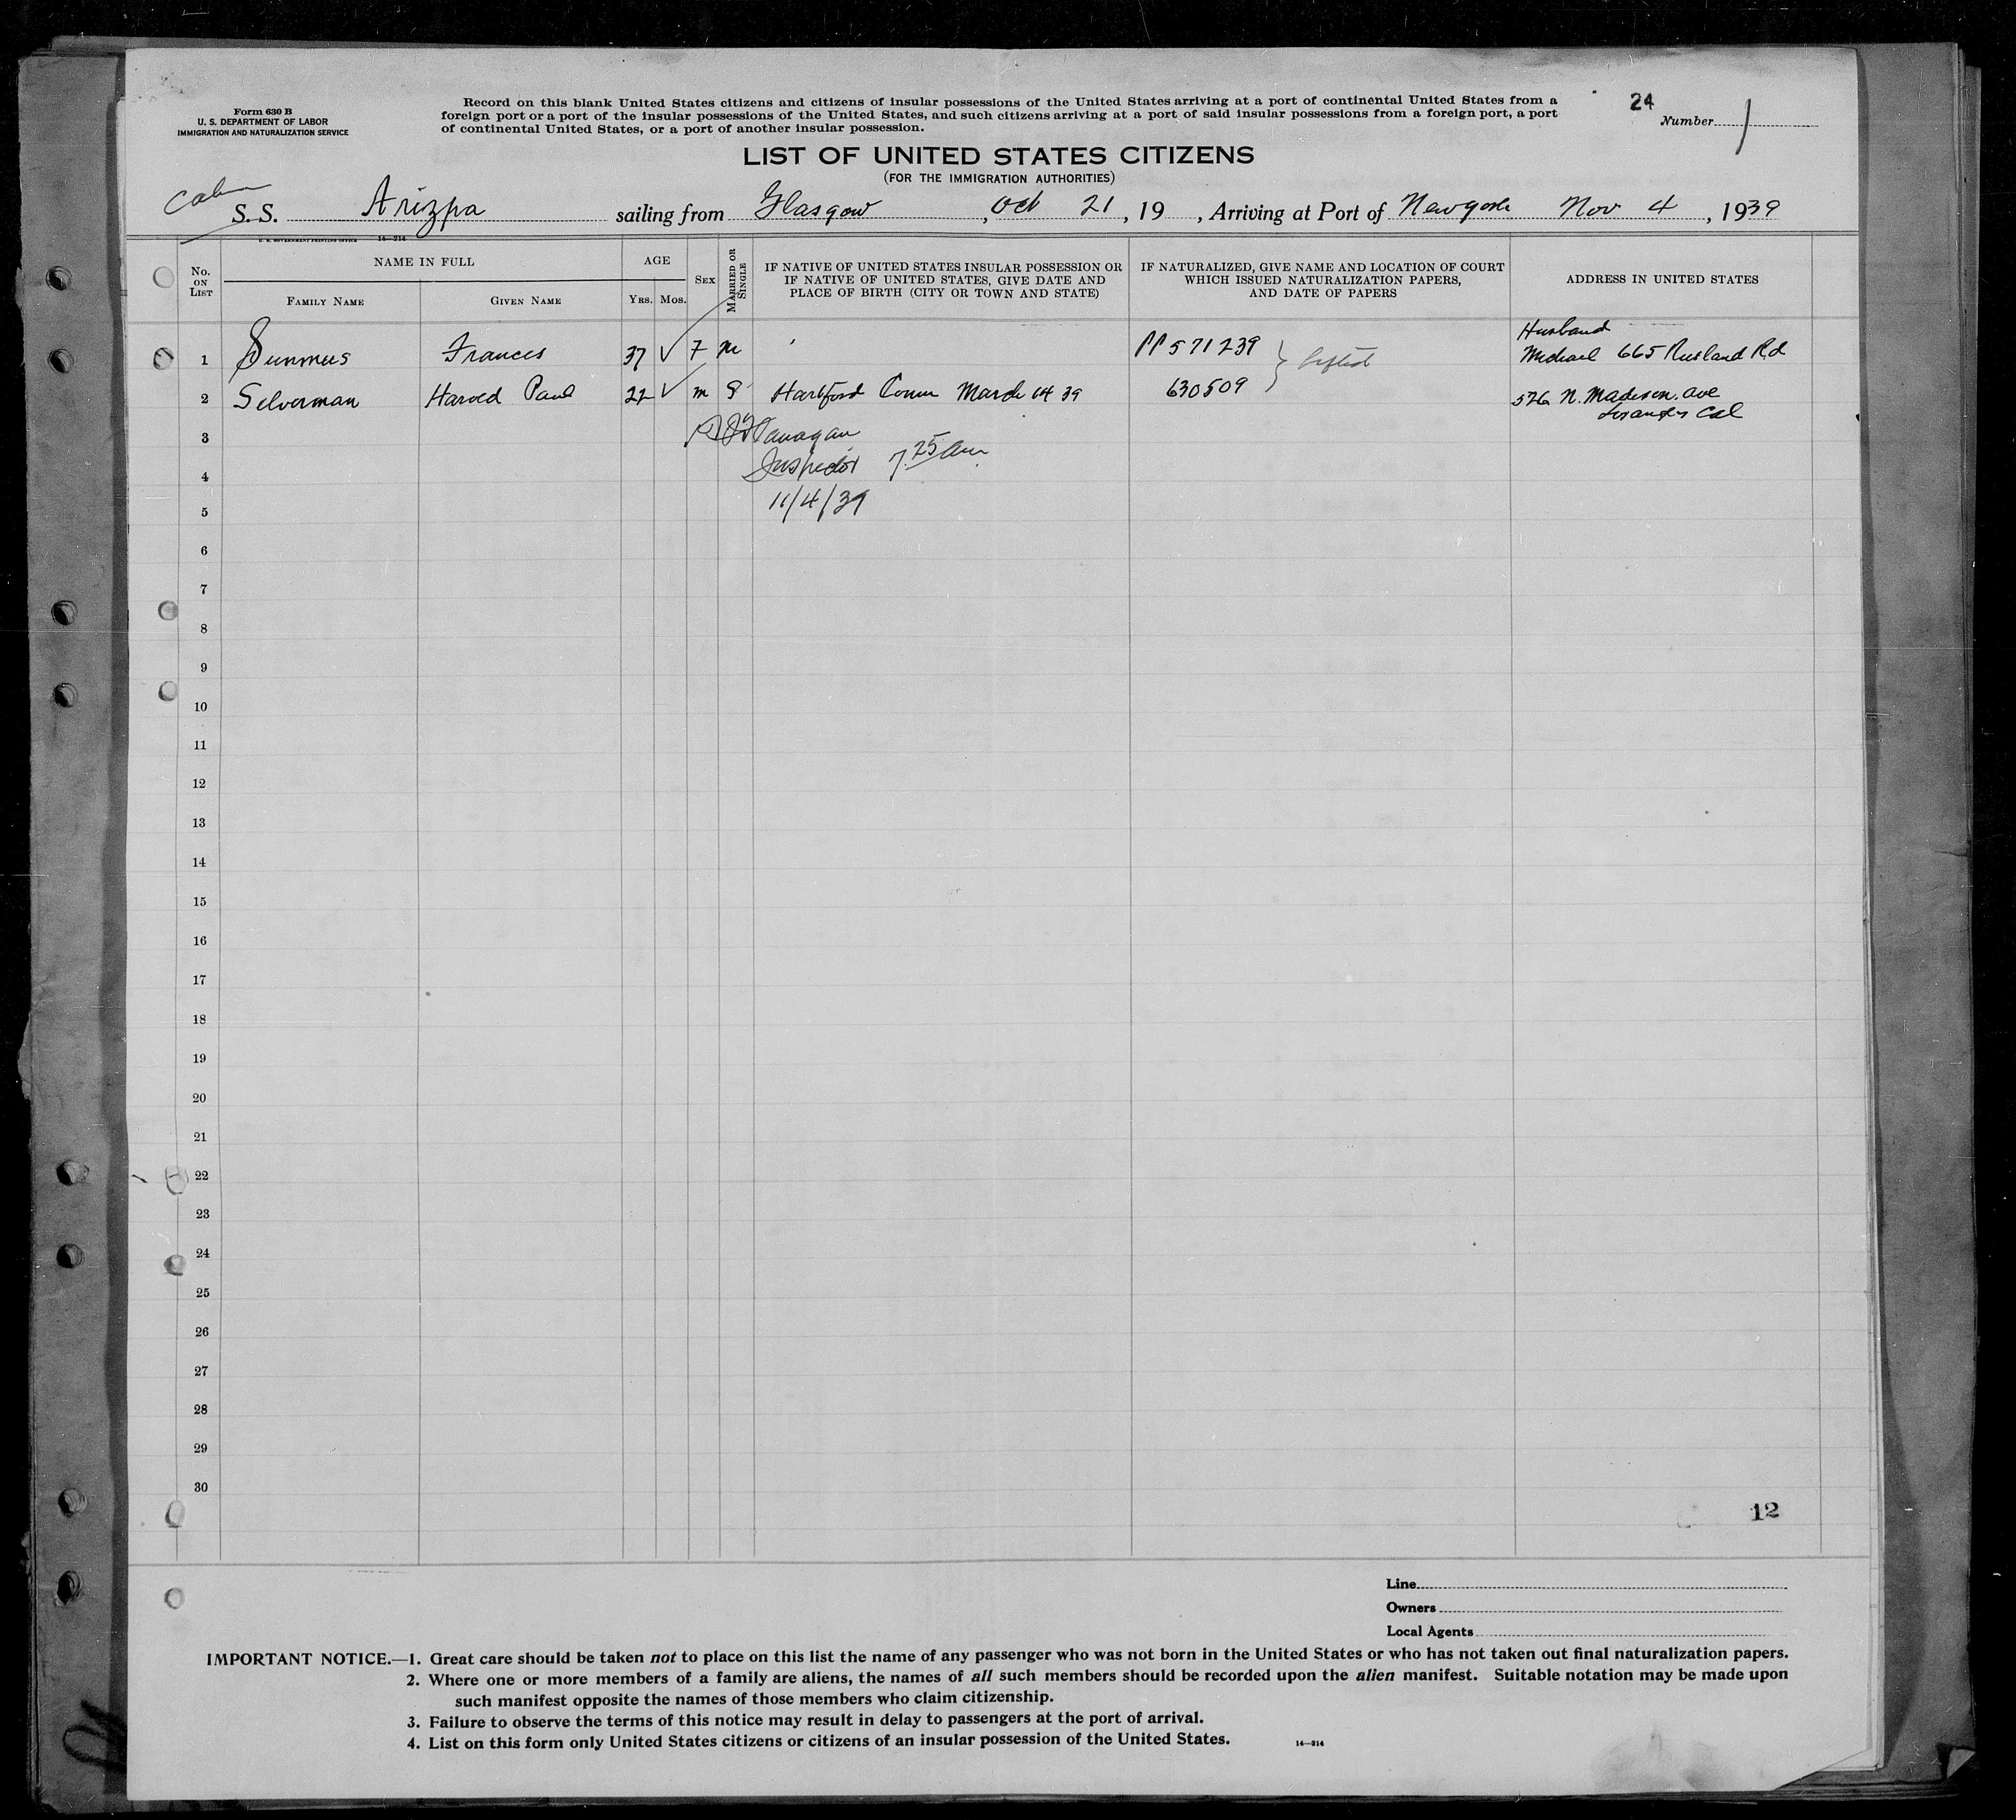 Form 630 B
U. S. DEPARTMENT OF LABOR
IMMIGRATION AND NATURALIZATION SERVICE
Record on this blank United States citizens and citizens of insular possessions of the United States arriving at a port of continental United States from a
foreign port or a port of the insular possessions of the United States, and such citizens arriving at a port of said insular possessions from a foreign port, a port
of continental United States, or a port of another insular possession.
24
Number 1
LIST OF UNITED STATES CITIZENS
(FOR THE IMMIGRATION AUTHORITIES)
Cabin
S. S. Arizpa sailing from Glasgow, Oct 21, 19 , Arriving at Port of New York Nov 4, 1939
U. S. GOVERNMENT PRINTING OFFICE 14—214
No. ON LIST
NAME IN FULL
FAMILY NAME
GIVEN NAME
AGE
YRS. MOS.
SEX
MARRIED OR SINGLE
IF NATIVE OF UNITED STATES INSULAR POSSESSION OR
IF NATIVE OF UNITED STATES, GIVE DATE AND
PLACE OF BIRTH (CITY OR TOWN AND STATE)
IF NATURALIZED, GIVE NAME AND LOCATION OF COURT
WHICH ISSUED NATURALIZATION PAPERS,
AND DATE OF PAPERS
ADDRESS IN UNITED STATES
Husband
1 Frances 37 ✓ F m PP 571239 Lifted Michael 665 Rd
2 Silverman Harold Paul 22 ✓ m S Hartford Conn March 14 39 630509 526 N. Madison. ave
Los Angeles Cal
3 Flanagan
4 Inspector 7 25 am
5 11/4/39
6
7
8
9
10
11
12
13
14
15
16
17
18
19
20
21
22
23
24
25
26
27
28
29
30
12
Line
Owners
Local Agents
IMPORTANT NOTICE.—1. Great care should be taken not to place on this list the name of any passenger who was not born in the United States or who has not taken out final naturalization papers.
2. Where one or more members of a family are aliens, the names of all such members should be recorded upon the alien manifest. Suitable notation may be made upon
such manifest opposite the names of those members who claim citizenship.
3. Failure to observe the terms of this notice may result in delay to passengers at the port of arrival.
4. List on this form only United States citizens or citizens of an insular possession of the United States.
14—214